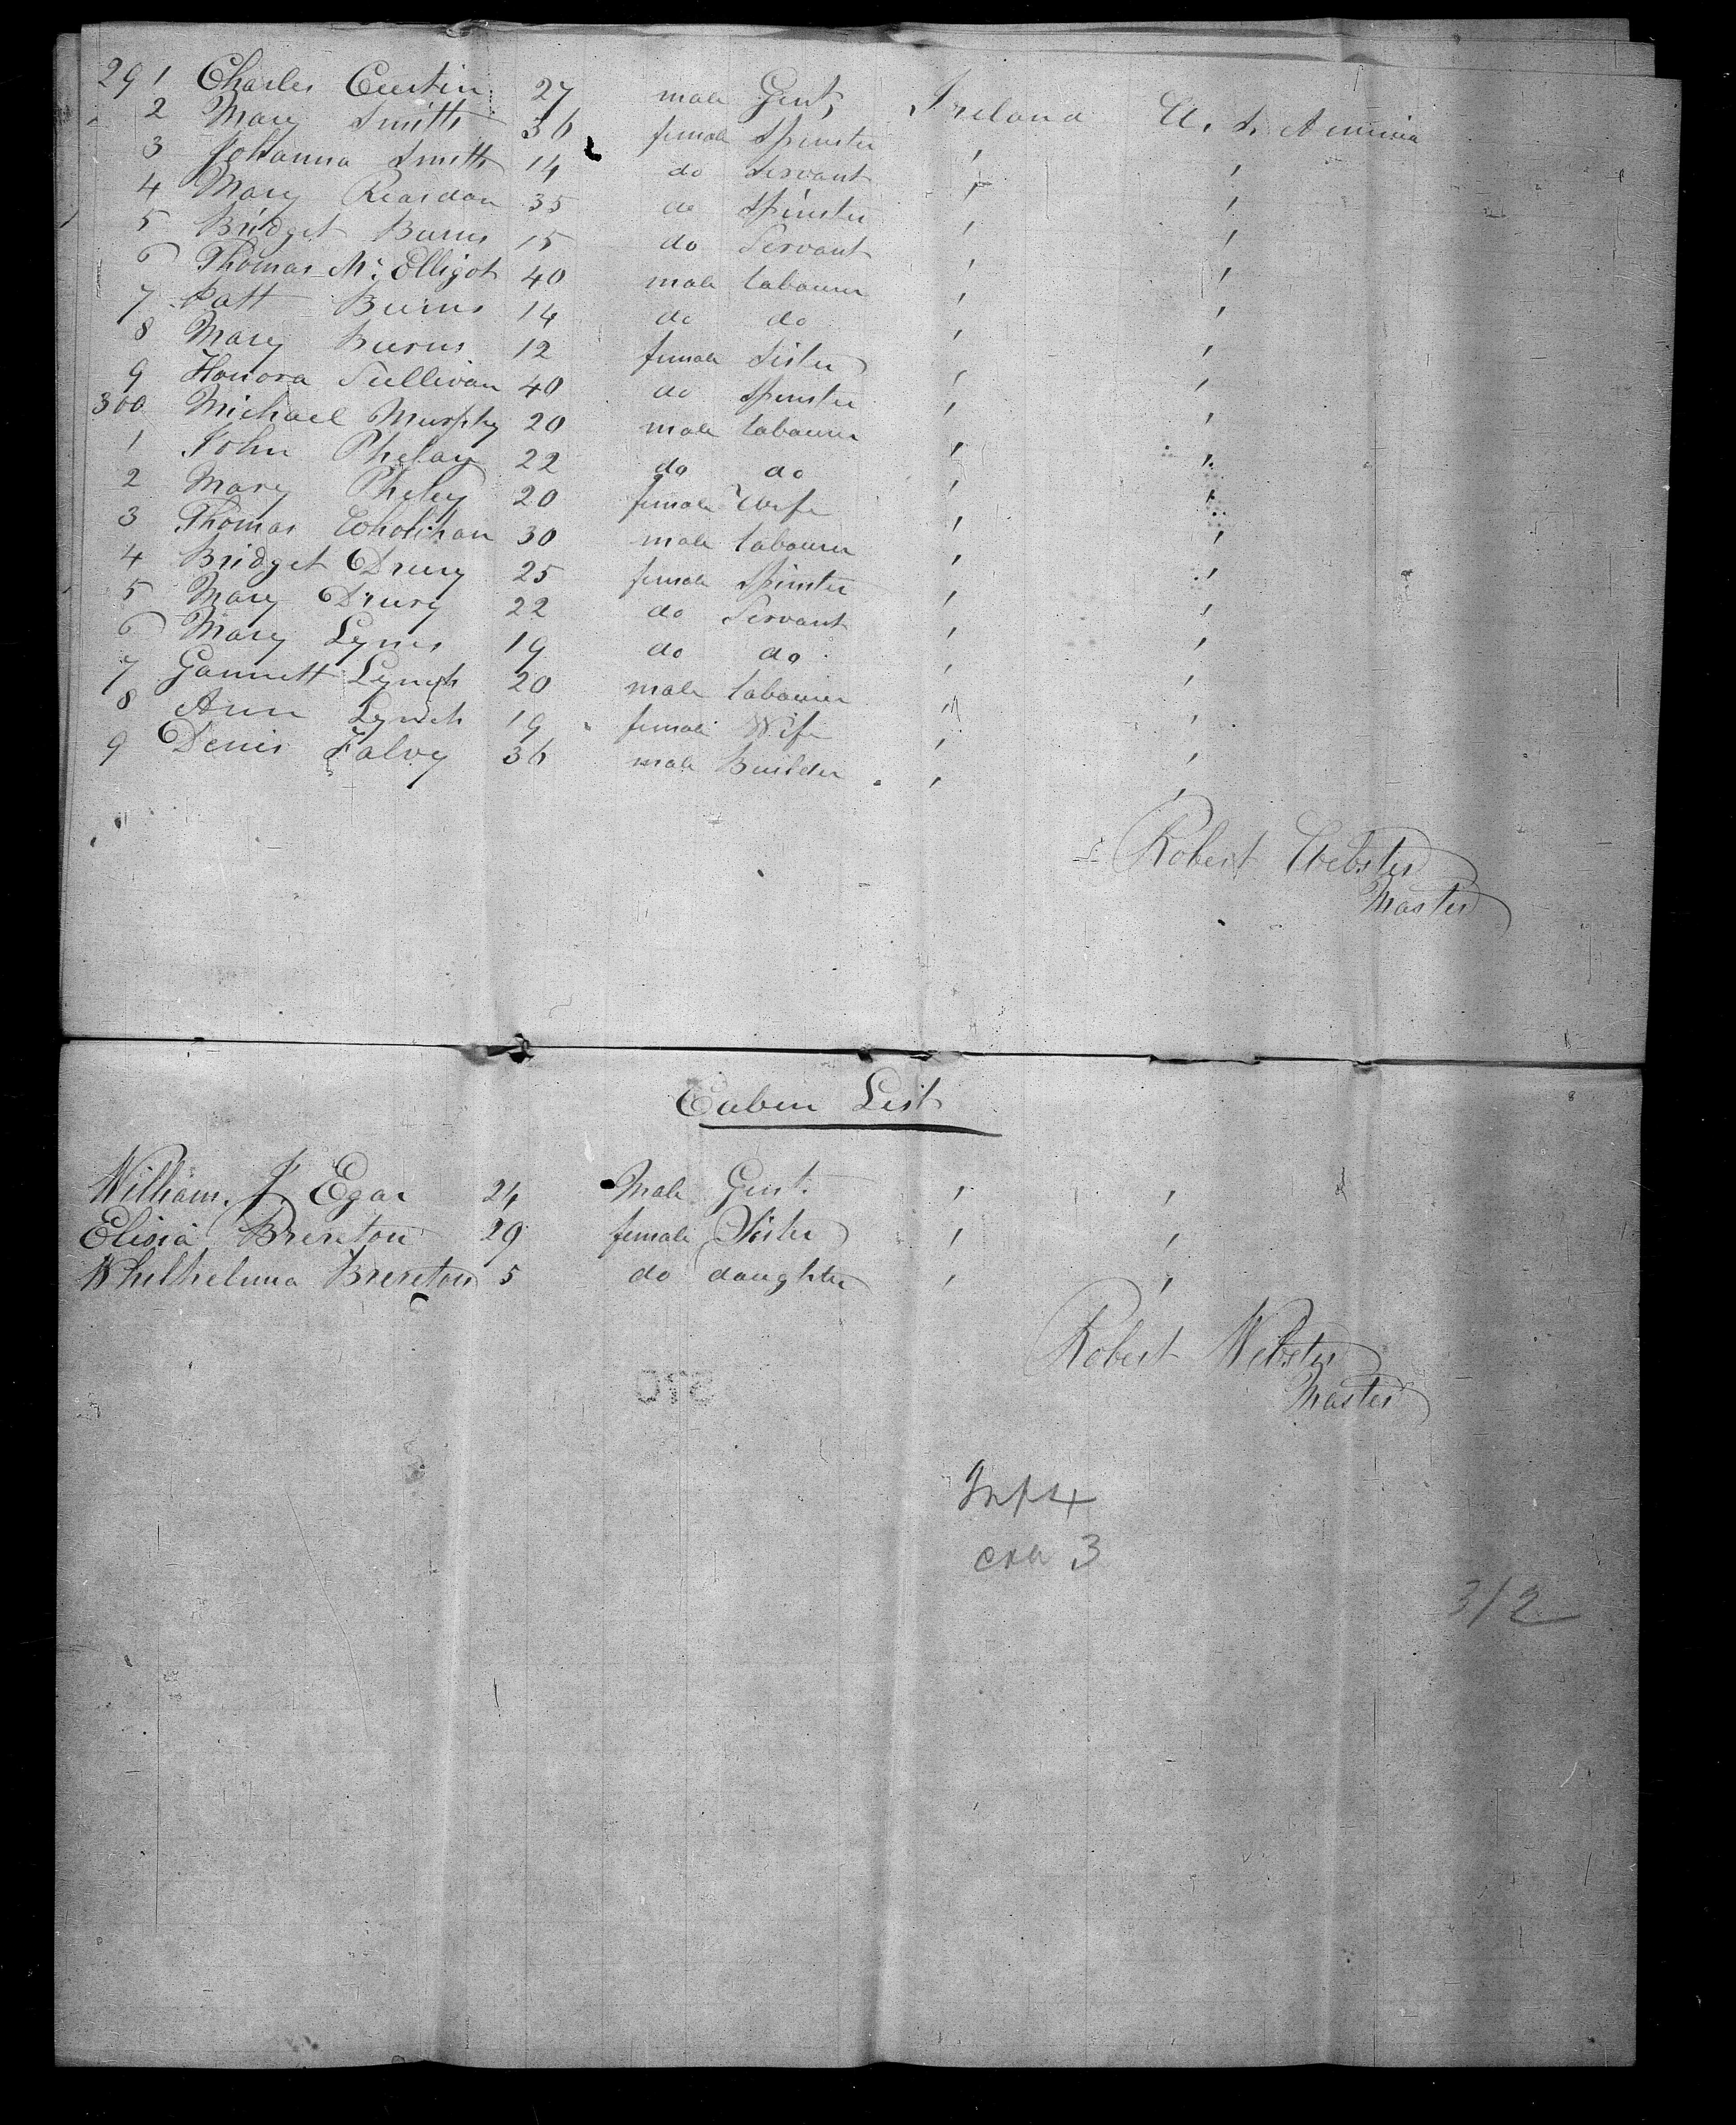 291 Charles Curtin 27 male Gent, Ireland U. S. America
2 Mary Smith 36 female Spinster , ,
3 Johanna Smith 14 do Servant , ,
4 Mary Reardon 35 do Spinster , ,
5 Bridget Burns 15 do Servant , ,
6 Thomas Mc Elligot 40 male labourer , ,
7 Patt Burns 14 do do , ,
8 Mary Burns 12 female Sister , ,
9 Honora Sullivan 40 do Spinster , ,
300 Michael Murphy 20 male labourer , ,
1 John Phelay 22 do do , ,
2 Mary Pheley 20 female Wife , ,
3 Thomas 30 male labourer , ,
4 Bridget Drury 25 female Spinster , ,
5 Mary Drury 22 do Servant , ,
6 Mary Lynes 19 do do , ,
7 Garrett Lynch 20 male labourer , ,
8 Ann Lynch 19 female Wife , ,
9 Denis Falvy 36 male Builder , ,
Robert Webster
Master
Cabin List
William. J. Egar 24 Male Gent. , ,
Elisia Brereton 29 female Sister , ,
Whilhelmina Brereton 5 do daughter , ,
Robert Webster
Master
Inf 4
3
312